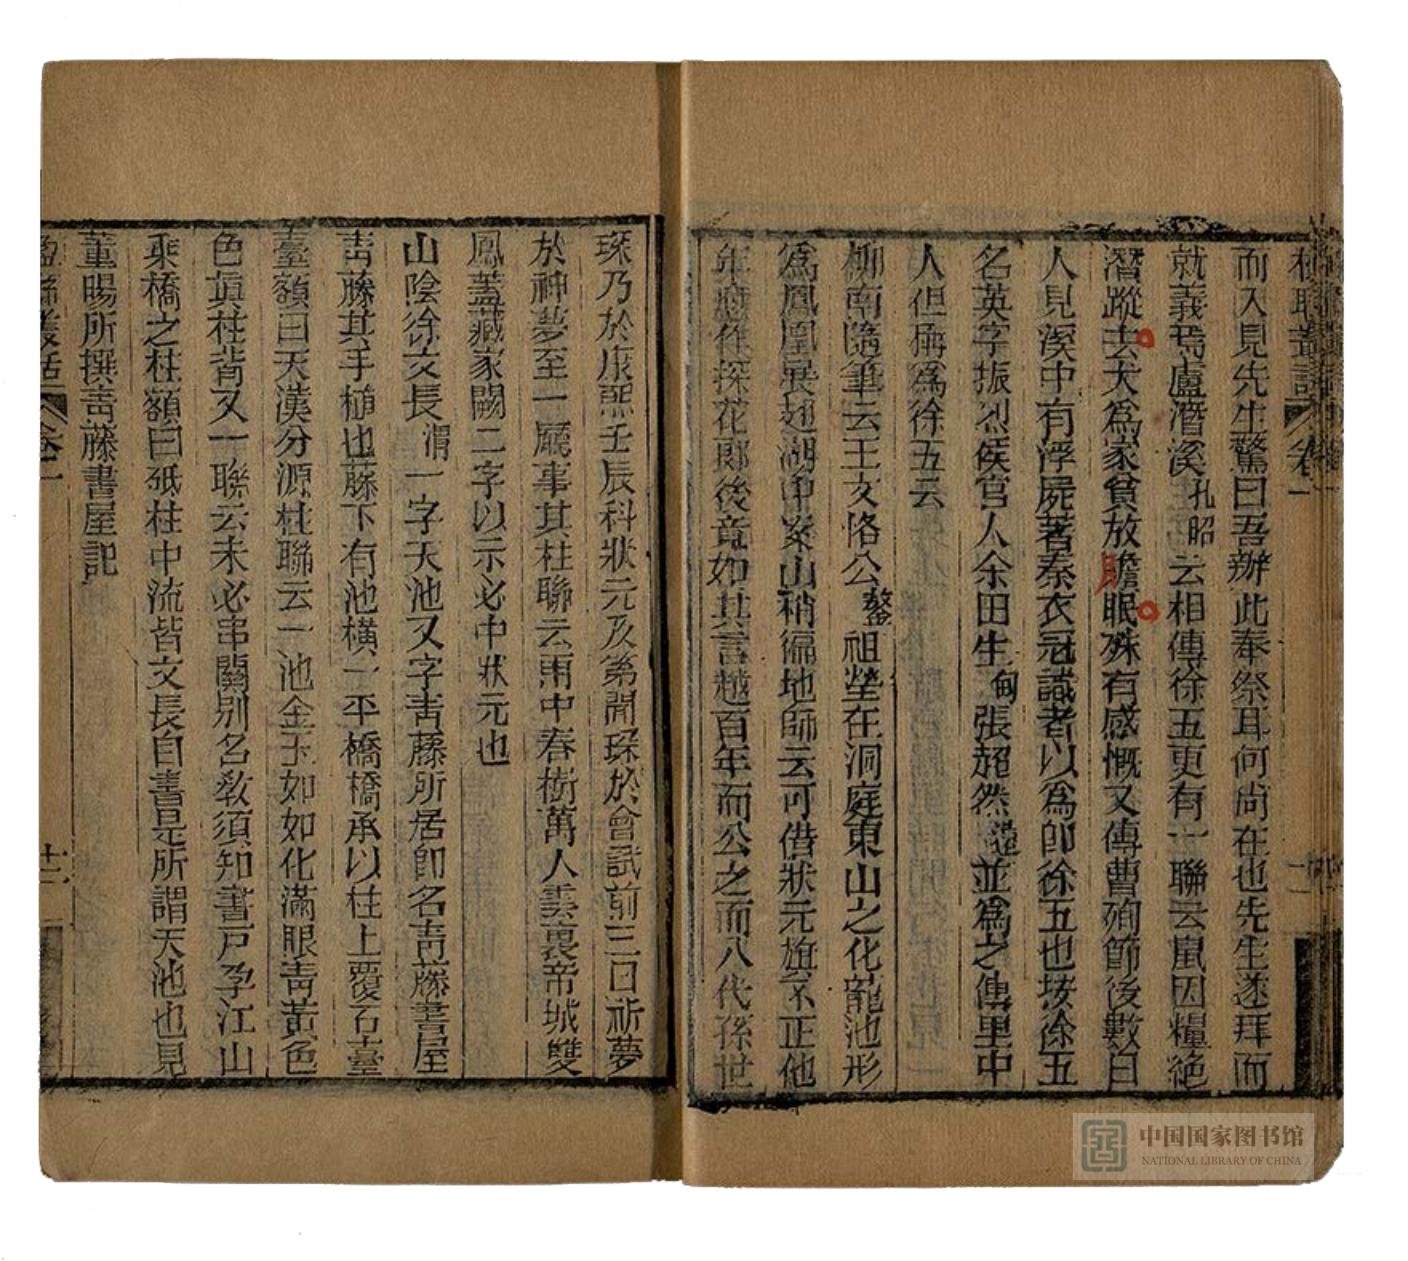 而入見先生驚曰吾辦此奉祭耳何尚在也先生遂拜而
就義焉盧潛溪孔昭云相傳徐五更有一聯云鼠因糧絶
潛蹤去犬爲家貧放膽眠殊有感慨又傳曹殉節後數日
人見溪中有浮屍著秦衣冠識者以爲卽徐五也按徐五
名英字振烈侯官人余田生甸張超然遠並爲之傳里中
人但稱爲徐五云
柳南隨筆云王文恪公鏊祖塋在洞庭東山之化龍池形
爲鳳凰展翅湖中案山稍徧地師云可借狀元旗不正他
年應作探花郞後竟如其言越百年而公之而八代孫世
琛乃於康熙壬辰科狀元及第聞琛於會試前三日祈夢
於神夢至一廳事其柱聯云雨中春樹萬人雲裏帝城雙
鳳蓋藏家闕二字以示必中狀元也
山陰徐文長渭一字天池又字靑藤所居卽名靑藤書屋
靑藤其手植也藤下有池橫一平橋橋承以柱上覆石臺
臺額曰天漢分源柱聯云一池金玉如如化滿眼靑黃色
色眞柱背又一聯云未必串關别名敎須知書戸孕江山
乘橋之柱額曰砥柱中流皆文長自書是所謂天池也見
董暘所撰靑藤書屋記
楹聯叢話 卷一 十二
中国国家图书馆
NATIONAL LIBRARY OF CHINA